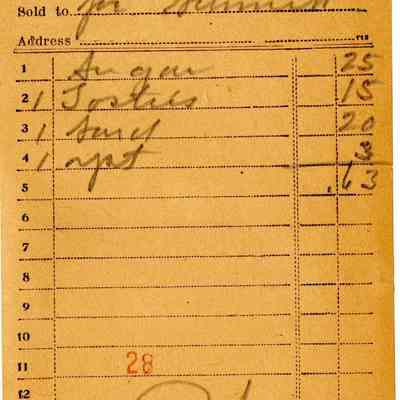 Sold to Joe
Address
1 Sugar 25
2 1 Tosties 15
3 1 Sard 20
4 1 Yst 3
5 .63
6
7
8
9
10
11 28
12